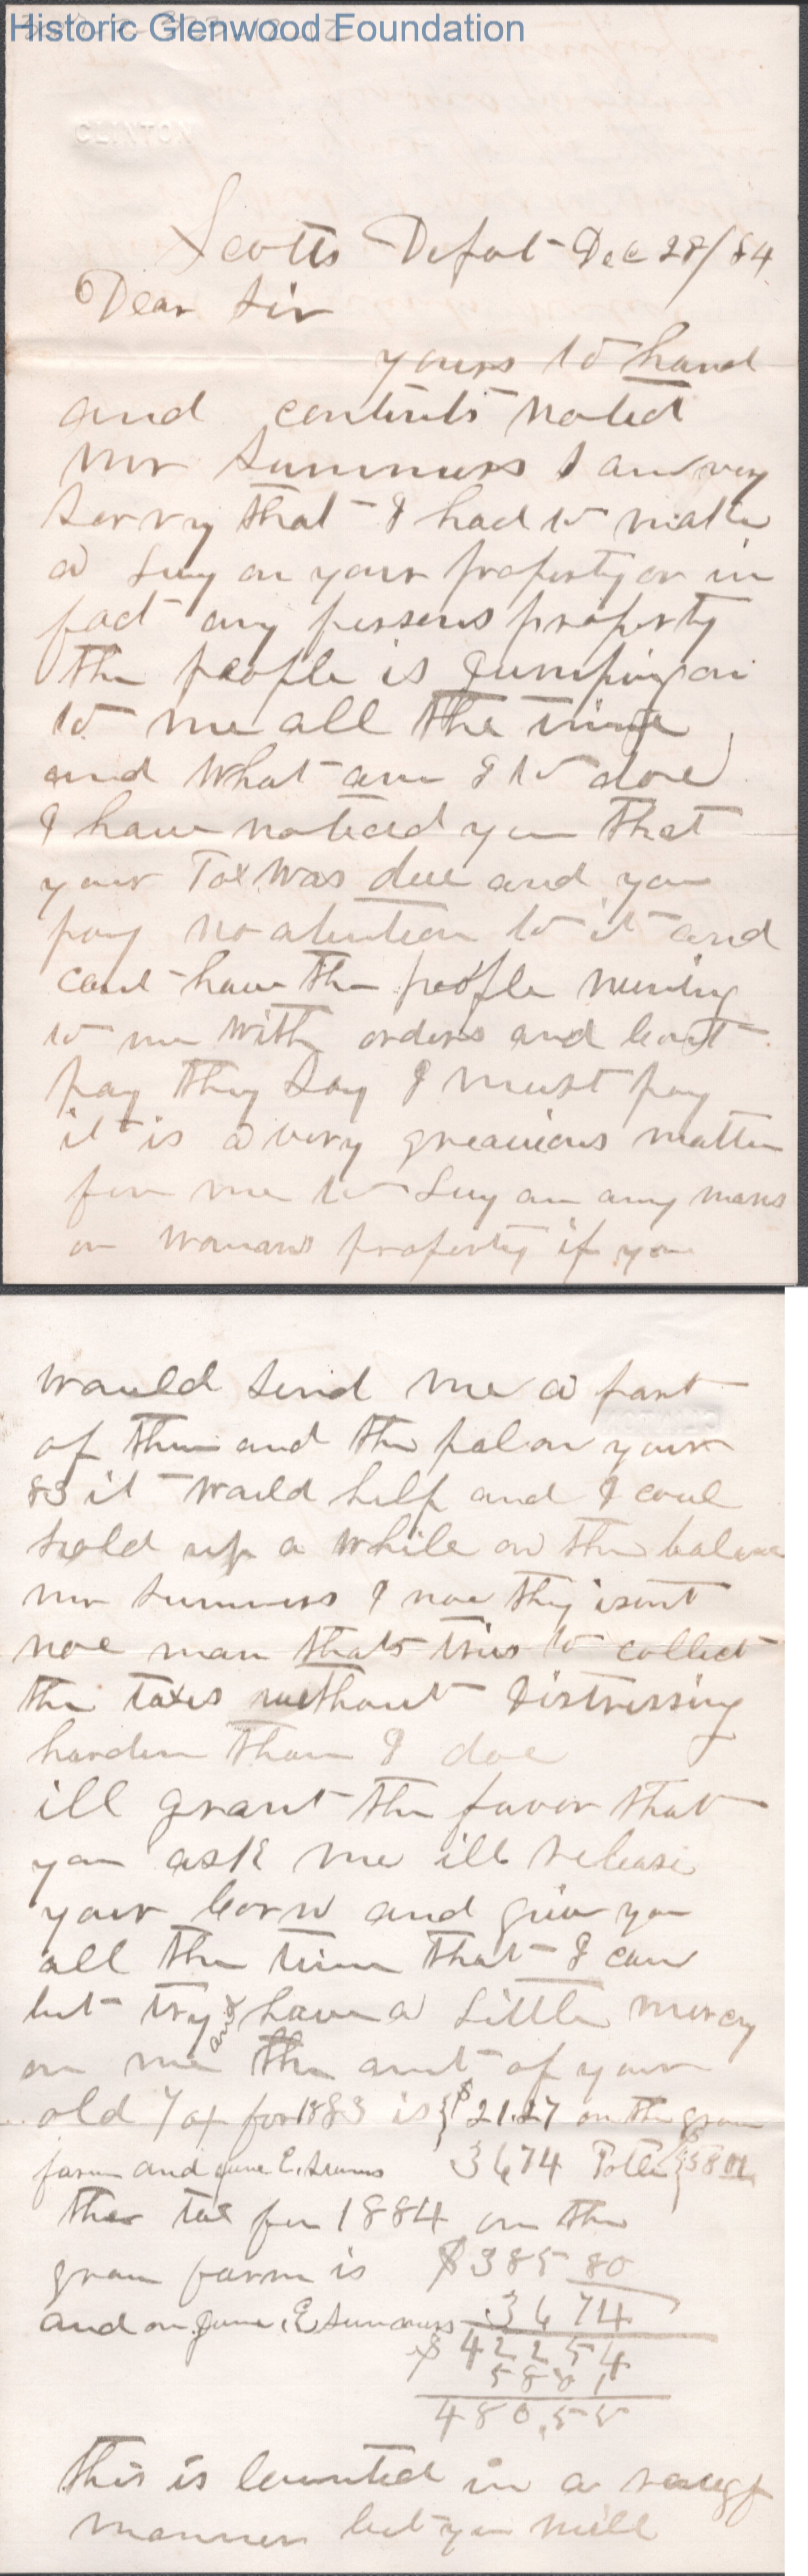 Historic Glenwood Foundation
CLINTON
Scotts Depot Dec 28/84
Dear Sir
yours to hand
and contents noted
Mr Summers I am very
sorry that I had to make
a Levy on your property or in
fact any persons property
the people is Jumping on
to me all the time
and what am I to doe
I have noticed you that
your Tax was due and you
pay no atention to it and
cant have the people runing
to me with orders and cant
pay they say I must pay
it is a very greavious matter
for me to Levy on any mans
or womans property if you
would send me a part
of this and the bal on your
83 it would help and I coul
hold up a while on the balance
mr Summers I noe they isent
noe man thats tries to collect
the taxes without distressing
harder than I doe
ill grant the favor that
you ask me ill release
your corn and give you
all the time that I can
but try and have a Little mercy
on me the amt of your
old Tax for 1883 is $21.27 on the gran
farm and Jane E. Sumers 36 74 Totle $58 01
the tax for 1884 on the
gran farm is $385 80
and on Jane E Summers 36 74
$422 54
58 01
480.55
this is counted in a rough
manner but you will